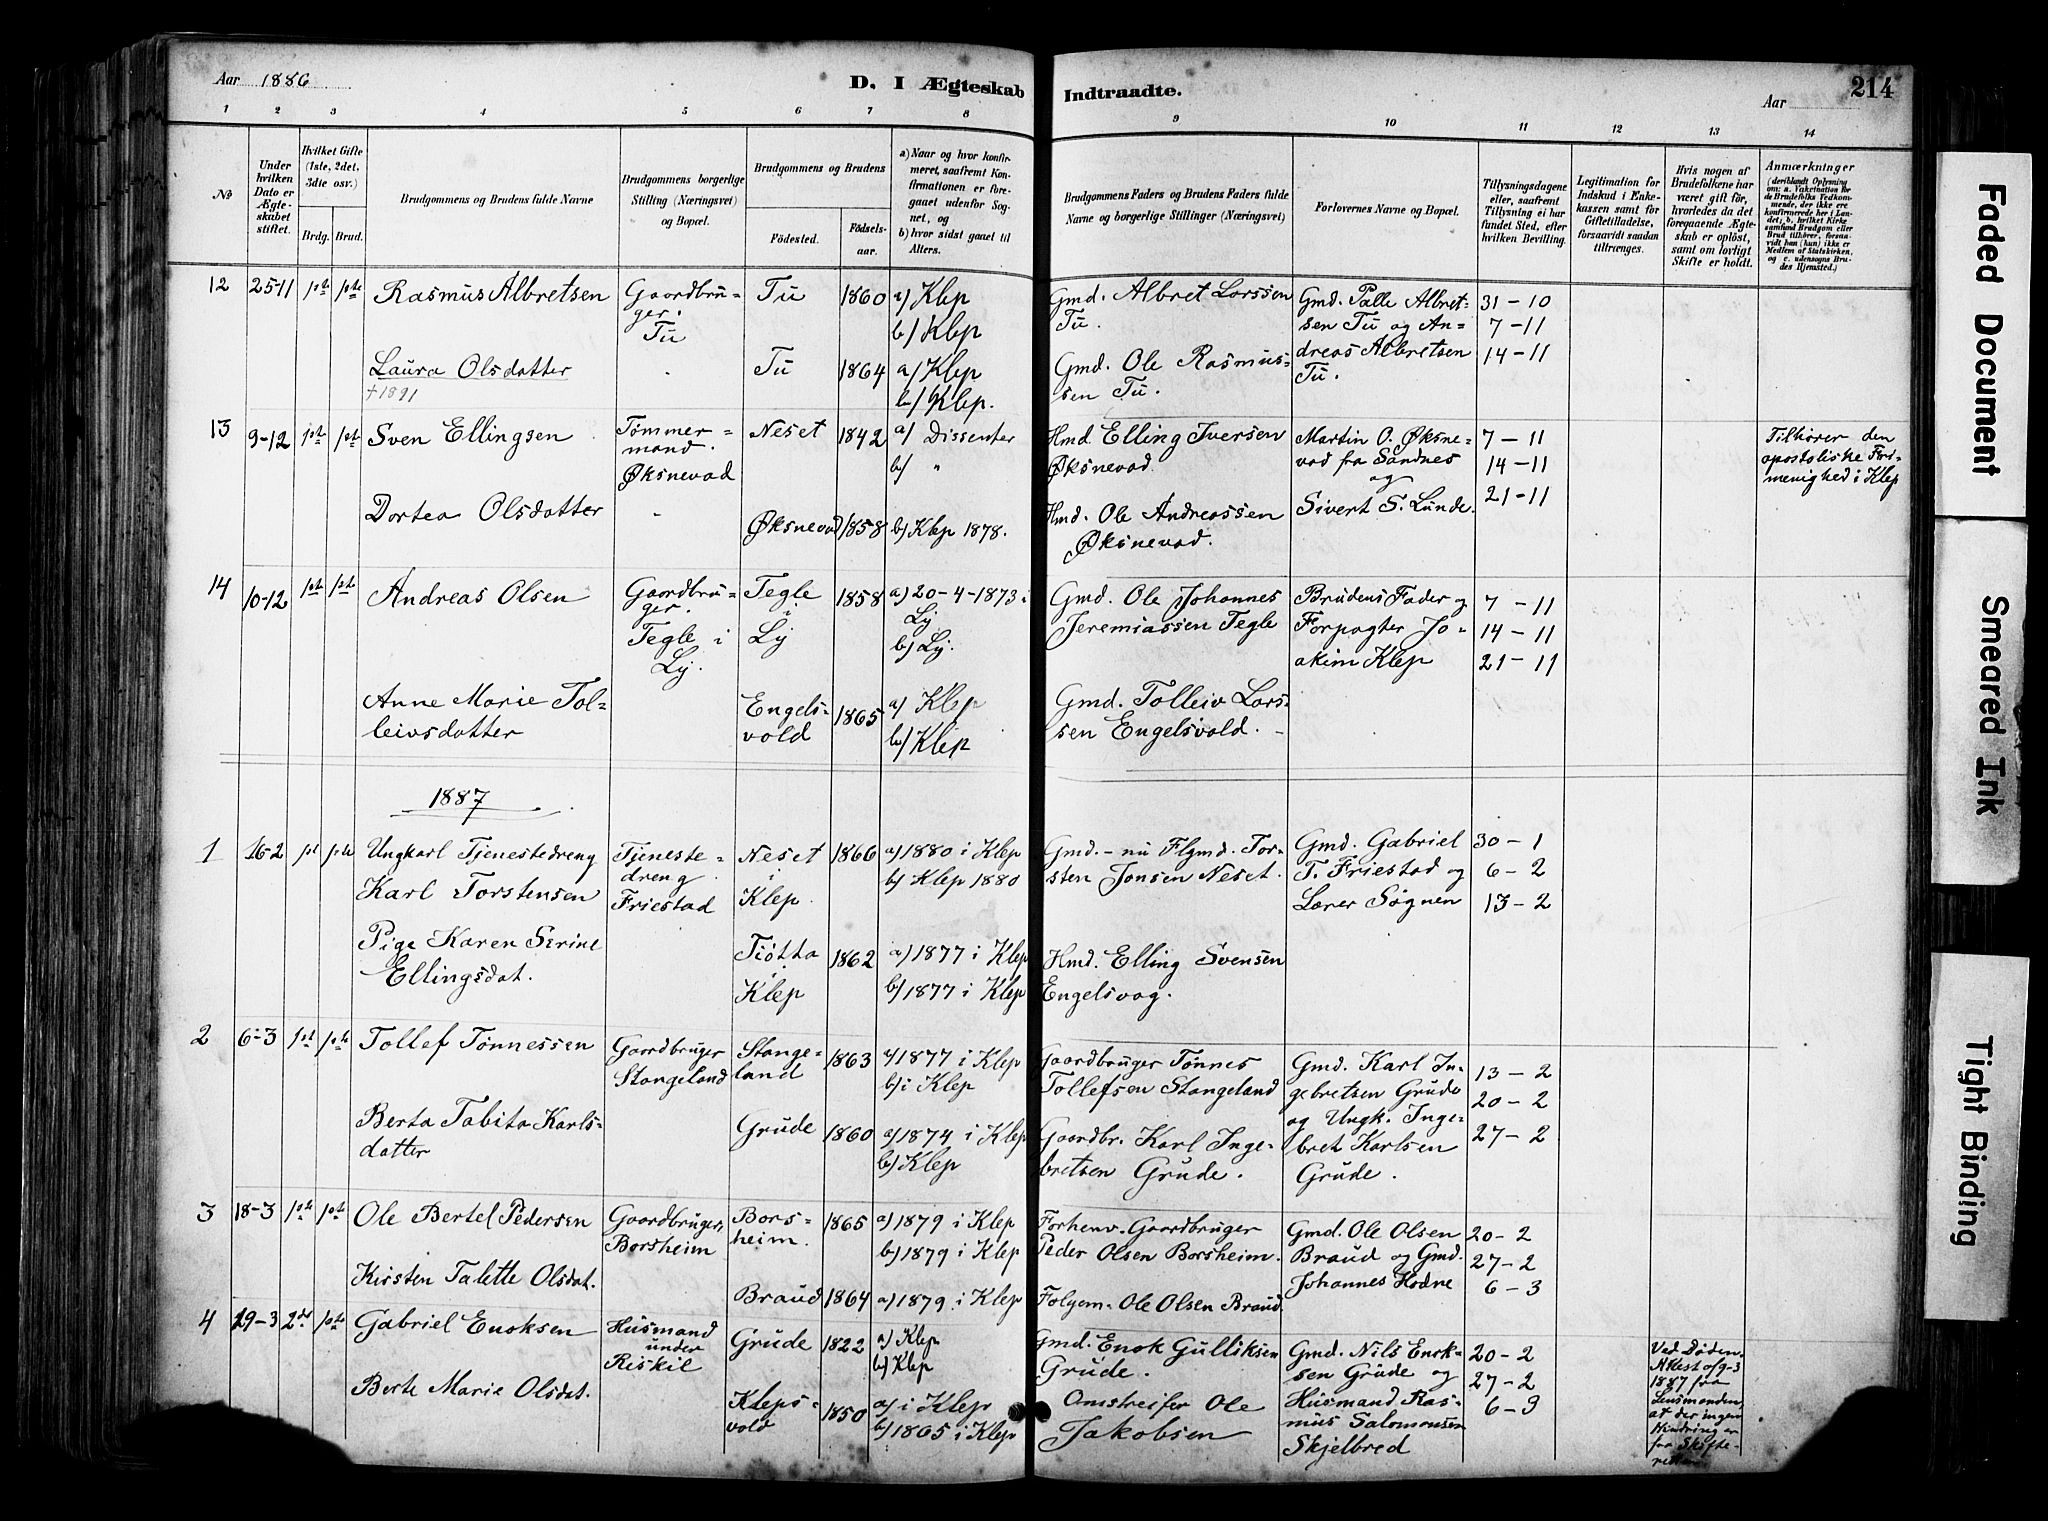 Aar 1886
D. I Ægteskab Indtraadte.
Aar
214
1 2 3 4 5 6 7 8 9 10 11 12 13 14
No
Under hvilken Dato er Ægteskabet stiftet.
Hvilket Gifte (1ste, 2det, 3die osv.)
Brdg. Brud.
Brudgommens og Brudens fulde Navne
Brudgommens borgerlige Stilling (Næringsvei) og Bopæl.
Brudgommens og Brudens
Fødested.
Fødselsaar.
a) Naar og hvor konfirmeret, saafremt Konfirmationen er foregaaet udenfor Sognet, og
b) hvor sidst gaaet til Alters.
Brudgommens Faders og Brudens Faders fulde Navne og borgerlige Stillinger (Næringsvei)
Forlovernes Navne og Bopæl.
Tillysningsdagene eller, saafremt Tillysning ei har fundet Sted, efter hvilken Bevilling.
Legitimation for Indskud i Enkekassen samt for Giftetilladelse, forsaavidt saadan tiltrænges.
Hvis nogen af Brudefolkene har været gift før, hvorledes da det foregaaende Ægteskab er opløst, samt om lovligt Skifte er holdt.
Anmærkninger
12 25-11 1ste 1ste Rasmus Albretsen
Gaardbruger. Tu
Tu 1860 a) Klep
b) Klep
Gmd. Albret Larssen
Tu.
Gmd. Palle Albretsen Tu og Andreas Albretsen Tu.
31-10
7-11
14-11
Laura Olsdatter
†1891
Tu 1864 a) Klep
b) Klep.
Gmd. Ole Rasmussen Tu.
13 9-12 1ste 1ste Sven Ellingsen
Tømmermand. Øksnevad
Neset 1842 a) Dissenter
b) "
Hmd. Elling Iversen
Øksnevad.
Martin O. Øksnevad fra Sandnes
og
Sivert S. Lunde.
7-11
14-11
21-11
Tilhører den apostoliske Frimenighed i Klep
Dortea Olsdatter
Øksnevad 1858 b) Klep 1878.
Hmd. Ole Andreassen
Øksnevad.
14 10-12 1ste 1ste Andreas Olsen
Gaardbruger. Tegle i Ly.
Tegle i Ly 1858 a) 20-4-1873 i Ly
b) Ly.
Gmd. Ole Johannes
Jeremiassen Tegle
Brudens Fader og
Forpagter Joakim Klep
7-11
14-11
21-11
Anne Marie Tolleivsdatter
Engelsvold 1865 a) Klep
b) Klep
Gmd. Tolleiv Larssen Engelsvold.
1887
1 16-2 1ste 1ste Ungkarl Tjenestedreng
Karl Torstensen
Tjenestedreng. Friestad
Neset i Klep. 1866 a) 1880 i Klep
b) Klep 1880
Gmd. - nu Flgmd. Torsten Jonsen Neset.
Gmd. Gabriel
T. Friestad og
Lærer Søgnen
30-1
6-2
13-2
Pige Karen Serine
Ellingsdat.
Tiøtta i Klep 1862 a) 1877 i Klep
b) 1877 i Klep
Hmd. Elling Svensen
Engelsvag.
2 6-3 1ste 1ste Tollef Tønnessen
Gaardbruger Stangeland
Stangeland 1863 a) 1877 i Klep
b) i Klep
Gaardbruger Tønnes
Tollefsen Stangeland
Gmd. Karl Ingebretsen Grude
og Ungk. Ingebret Karlsen
Grude.
13-2
20-2
27-2
Berta Tabita Karlsdatter
Grude 1860 a) 1874 i Klep
b) Klep
Gaardbr. Karl Ingebretsen Grude.
3 18-3 1ste 1ste Ole Bertel Pedersen
Gaardbruger, Borsheim
Borsheim. 1865 a) 1879 i Klep
b) 1879 i Klep
Forhenv. Gaardbruger
Peder Olsen Borsheim.
Gmd. Ole Olsen
Braud og Gmd.
Johannes Hodne
20-2
27-2
6-3
Kirsten Talette Olsdat.
Braud 1864 a) 1879 i Klep
Folgem. Ole Olsen Braud.
4 29-3 2det 1ste Gabriel Enoksen
Husmand under Riskil
Grude 1822 a) Klep
b) Klep
Gmd. Enok Gulliksen
Grude.
Gmd. Nils Enoksen Grude og
Husmand Rasmus Salomonsen
Skjelbred
20-2
27-2
6-3
Ved Døden.
Attest af 9-3
1887 fra
Lensmanden,
at der ingen
Hindring er
fra Skifte-
Berte Marie Olsdat.
Klepsvold 1850 a) i Klep
b) 1865 i Klep
Omstreifer Ole
Jakobsen
Faded Document
Smeared Ink
Tight Binding